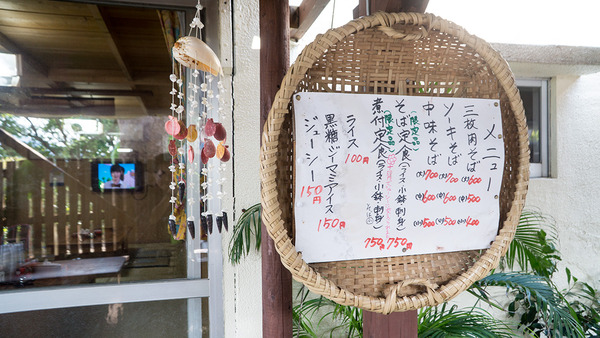 メニュー
三枚肉そば (大)600 (中)500 (小)400
ソーキそば (大)700 (中)600 (小)500
中味そば (大)700 (中)600 (小)500
(限定品)
そば定食(ライス 小鉢 刺身) 750
(限定品)
煮付定食(ライス 小鉢 刺身) 750
ライス 100円
黒糖ジィマミアイス 150円
ジューシー 150円